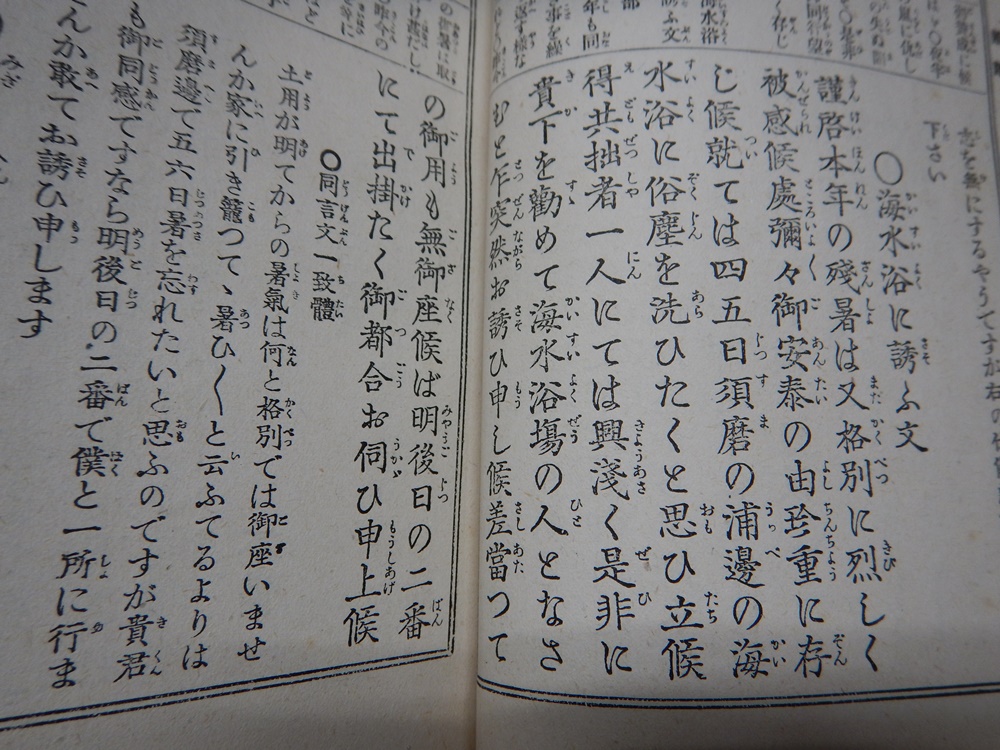 下さい
〇海水浴に誘ふ文
謹啓本年の殘暑は又格別に烈しく
被感候處彌々御安泰の由珍重に存
じ候就ては四五日須磨の浦邊の海
水浴に俗塵を洗ひたくと思ひ立候
得共拙者一人にては興淺く是非に
貴下を勸めて海水浴塲の人となさ
むと乍突然お誘ひ申し候差當つて
の御用も無御座候ば明後日の二番
にて出掛たく御都合お伺ひ申上候
〇同言文一致體
土用が明てからの暑氣は何と格別では御座いませ
んか家に引き籠つてゝ暑ひ〱と云ふてるよりは
須磨邊で五六日暑を忘れたいと思ふのですが貴君
も御同感ですなら明後日の二番で僕と一所に行ま
せんか敢てお誘ひ申します